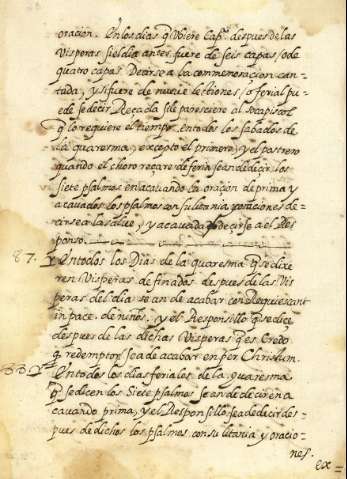 oración. En los dias q̃ Vbiere Capª despues de las
Visperas si el dia antes fuere de seis capas, o de
quatro capas Decirsea la commemoracion can=
tada, y si fuere de nueue lectiones, o ferial pu=
ede se decir Reçada si le paresciere al socapiscol
q̃ lo requiere el tiempo. en todos los sabados de
la quaresma, excepto el primero, y el postrero
quando el choro reçare de feria sean de decir los
siete psalmos en acauando la oración de prima y
acauados los psalmos con su litania, y oraciones de=
cirsea la salue, y acauada decirse a el Res
ponso.
87. Y En todos los Dias de la quaresma q̃ se dixe
ren Visperas de finados despues de las Vis
peras del dia sean de acabar con Requiescant
in pace. de niños. y el Responsillo q̃ se diçe
despues de las dichas Visperas q̃ es Credo
q̃ redemptor sea de acabar en per Christum.
88. Y En todos los dias feriales de la quaresma
q̃ se dicen los siete psalmos sean de decir en a
cauando prima, y el Responsillo sea de decir des=
pues de dichos los psalmos con su litania y oracio=
nes.
ex=